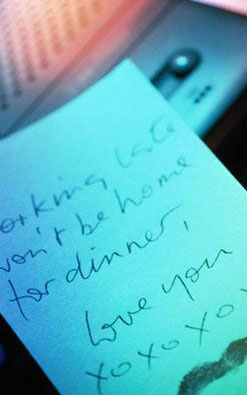 orking late
won't be home
for dinner,
love you
xoxoxo